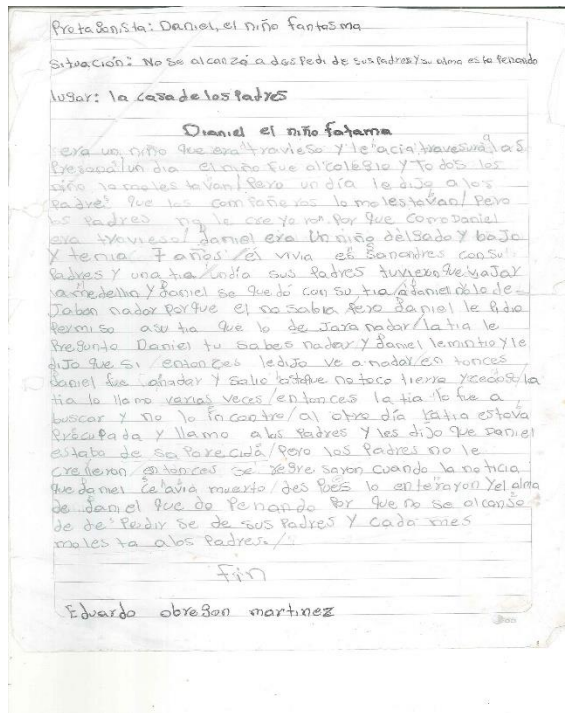 Protagonista: Daniel, el niño fantasma
Situación: No se alcanzó a despedi de sus padres y su alma esta penando
lugar: la casa de los Padres
Dianiel el niño fatama
era un niño que era travieso y le acia travesuras a las
Personas/un dia el niño fue al colegio y Todos los
niño lo molestavan/Pero un día le dijo a los
Padres que los compañeros lo molestavan/Pero
los Padres no le creyo ron Por que como Daniel
era travieso/daniel era Un niño delgado y bajo
y tenia 7 años/el vivia en Sanandres con su
Padres y una tia/undia sus Padres tuvieron que viajar
a medellin y daniel se quedó con su tia/a daniel no lo de
Jaban nadar porque el no sabia Pero daniel le Pidio
Permiso asu tia que lo de Jara nadar/la tia le
Pregunto Daniel tu sabes nadar y daniel lemintio y le
dijo que si/entonces ledijo ve a nadar/en tonces
daniel fue anadar y salio no toco tierra y
tia lo llamo varias veces/entonces la tia lo fue a
buscar y no lo in contro/al otro día la tia estava
Precupada y llamo a los Padres y les dijo que Daniel
estabo de sa Parecidà/Pero los Padres no le
creileron/entonces se regre saron cuando la noticia
que daniel ce avia muerto/des Pues lo enterayon y el alma
de daniel que do Penando Por que no se alcanso
de de Pedir se de sus Padres y cada mes
moles ta alos Padres/.
Fin
Eduardo obregon martinez